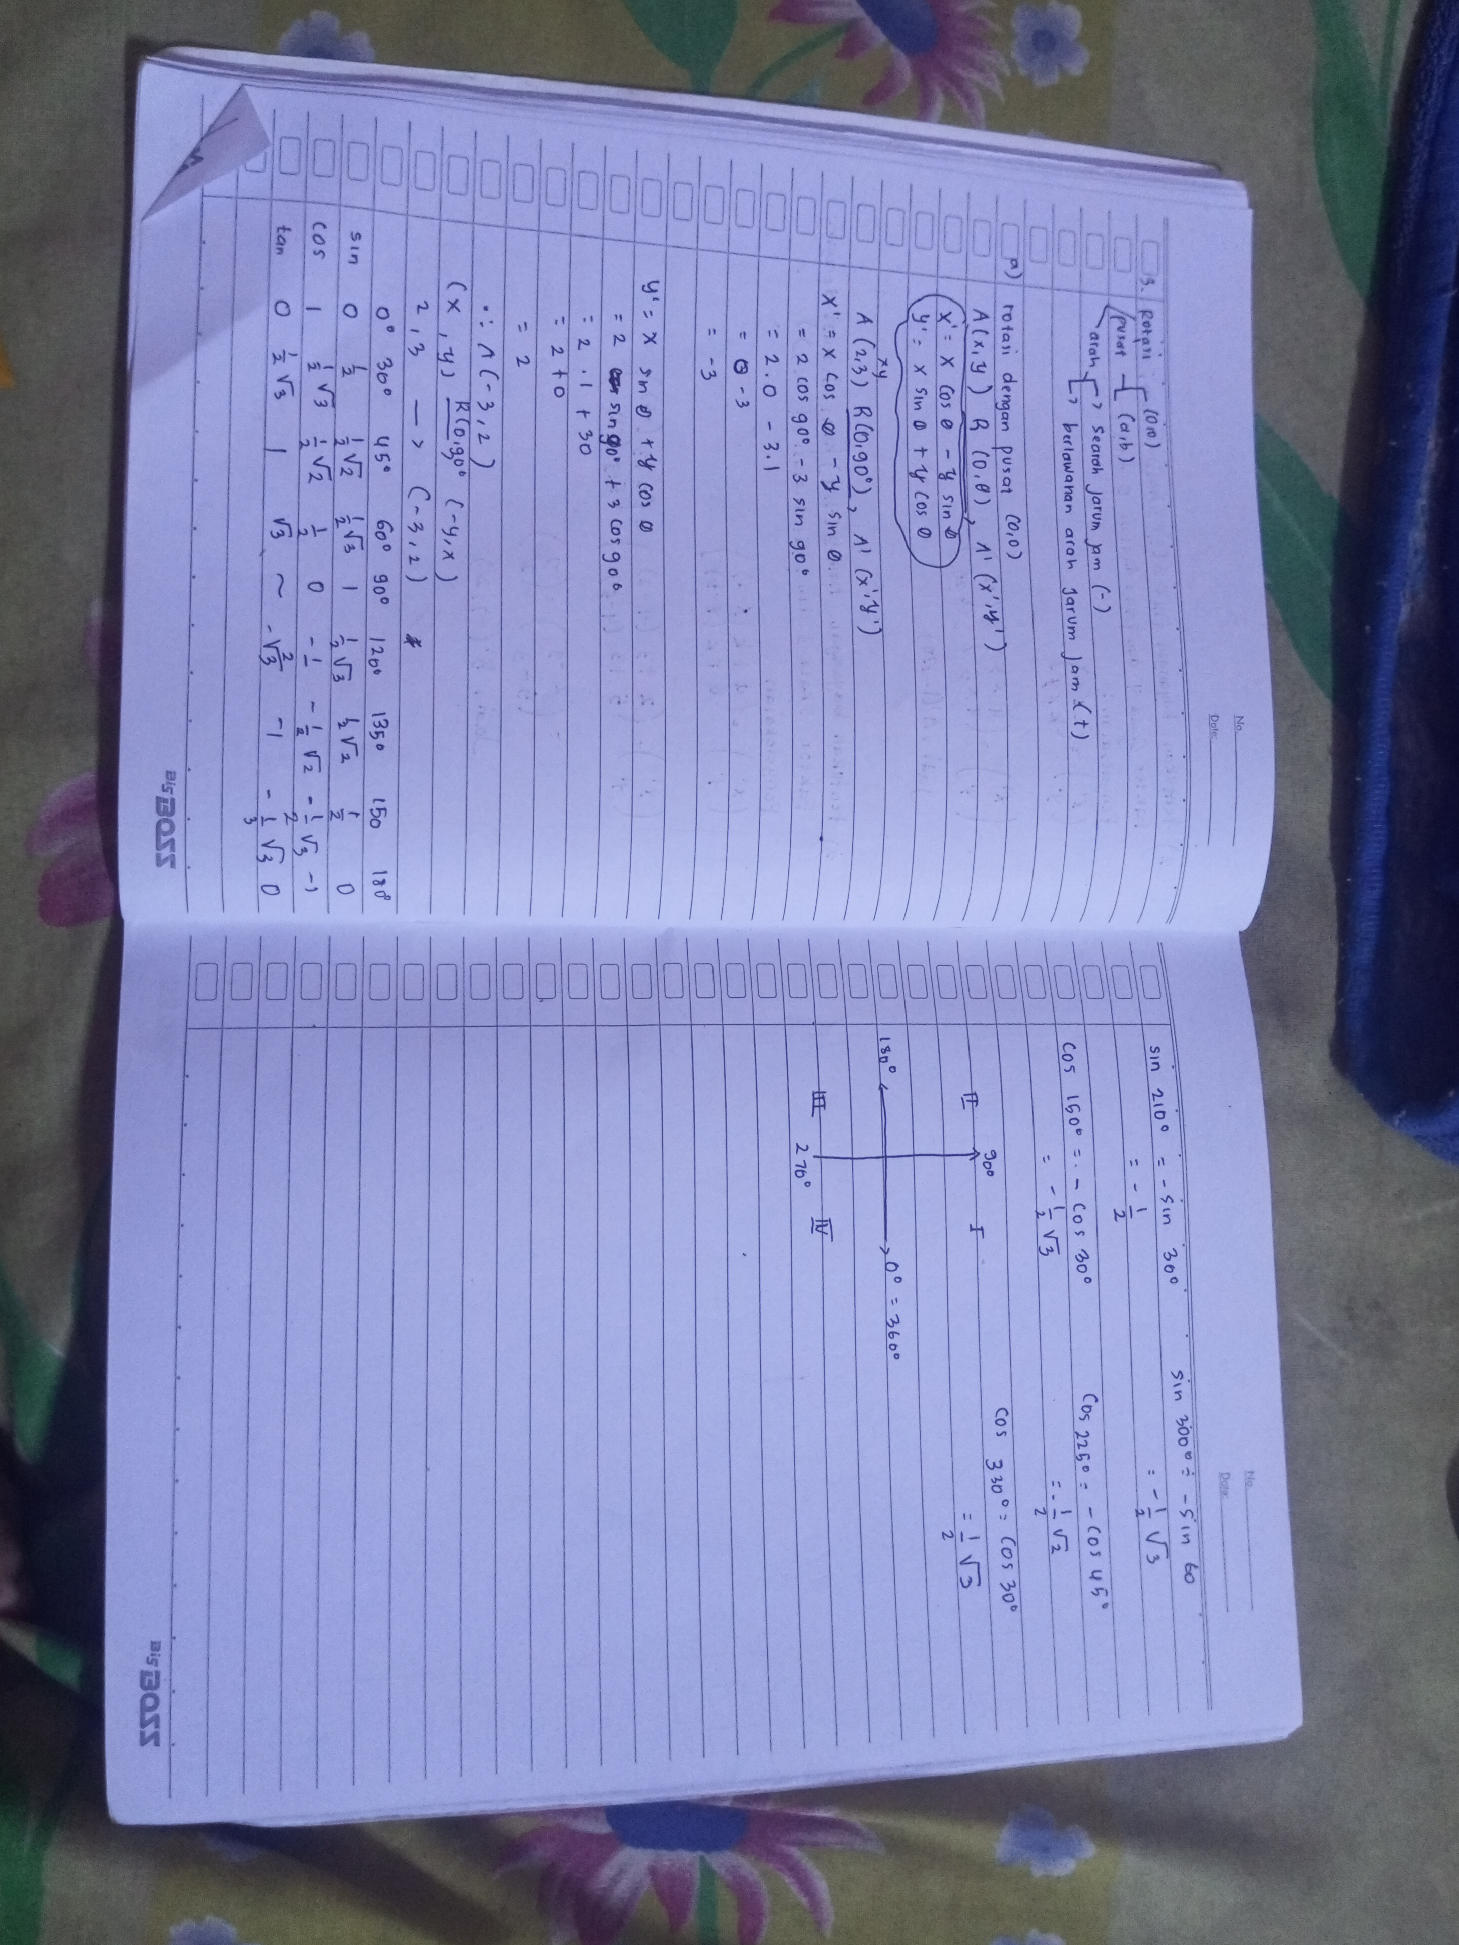 No.
Date:
3. Rotasi
pusat (0,0)
(a,b)
arah > Searah jarum jam (-)
> berlawanan arah jarum jam (+)
a) rotasi dengan pusat (0,0)
A(x,y) R (0,θ), A' (x',y')
x' = x cos θ - y sin θ
y' = x sin θ + y cos θ
xy
A (2,3) R(0,90°), A' (x',y')
x' = x cos θ - y sin θ
= 2 cos 90° - 3 sin 90°
= 2.0 - 3.1
= 0 - 3
= -3
y' = x sin θ + y cos θ
= 2 sin 90° + 3 cos 90°
= 2.1 + 30
= 2+0
= 2
∴ A (-3,2)
(x,y) R(0,90° (-y,x)
2,3 —> (-3,2) *
0° 30° 45° 60° 90° 120 135° 150 180°
sin 0 1/2 1/2√2 1/2√3 1 1/2√3 1/2√2 1/2 0
cos 1 1/2√3 1/2√2 1/2 0 -1/2 -1/2√2 -1/2√3 -1
tan 0 1/2√3 1 √3 ~ -√3 -1 -1/3√3 0
Big BOSS
No.
Date:
sin 210° = -sin 30° sin 300° = -sin 60
= -1/2 = -1/2√3
cos 150° = - cos 30° cos 225° = -cos 45°
= -1/2√3 = -1/2√2
cos 330° = cos 30°
= 1/2√3
90°
II I
180° 0° = 360°
III IV
270°
Big BOSS